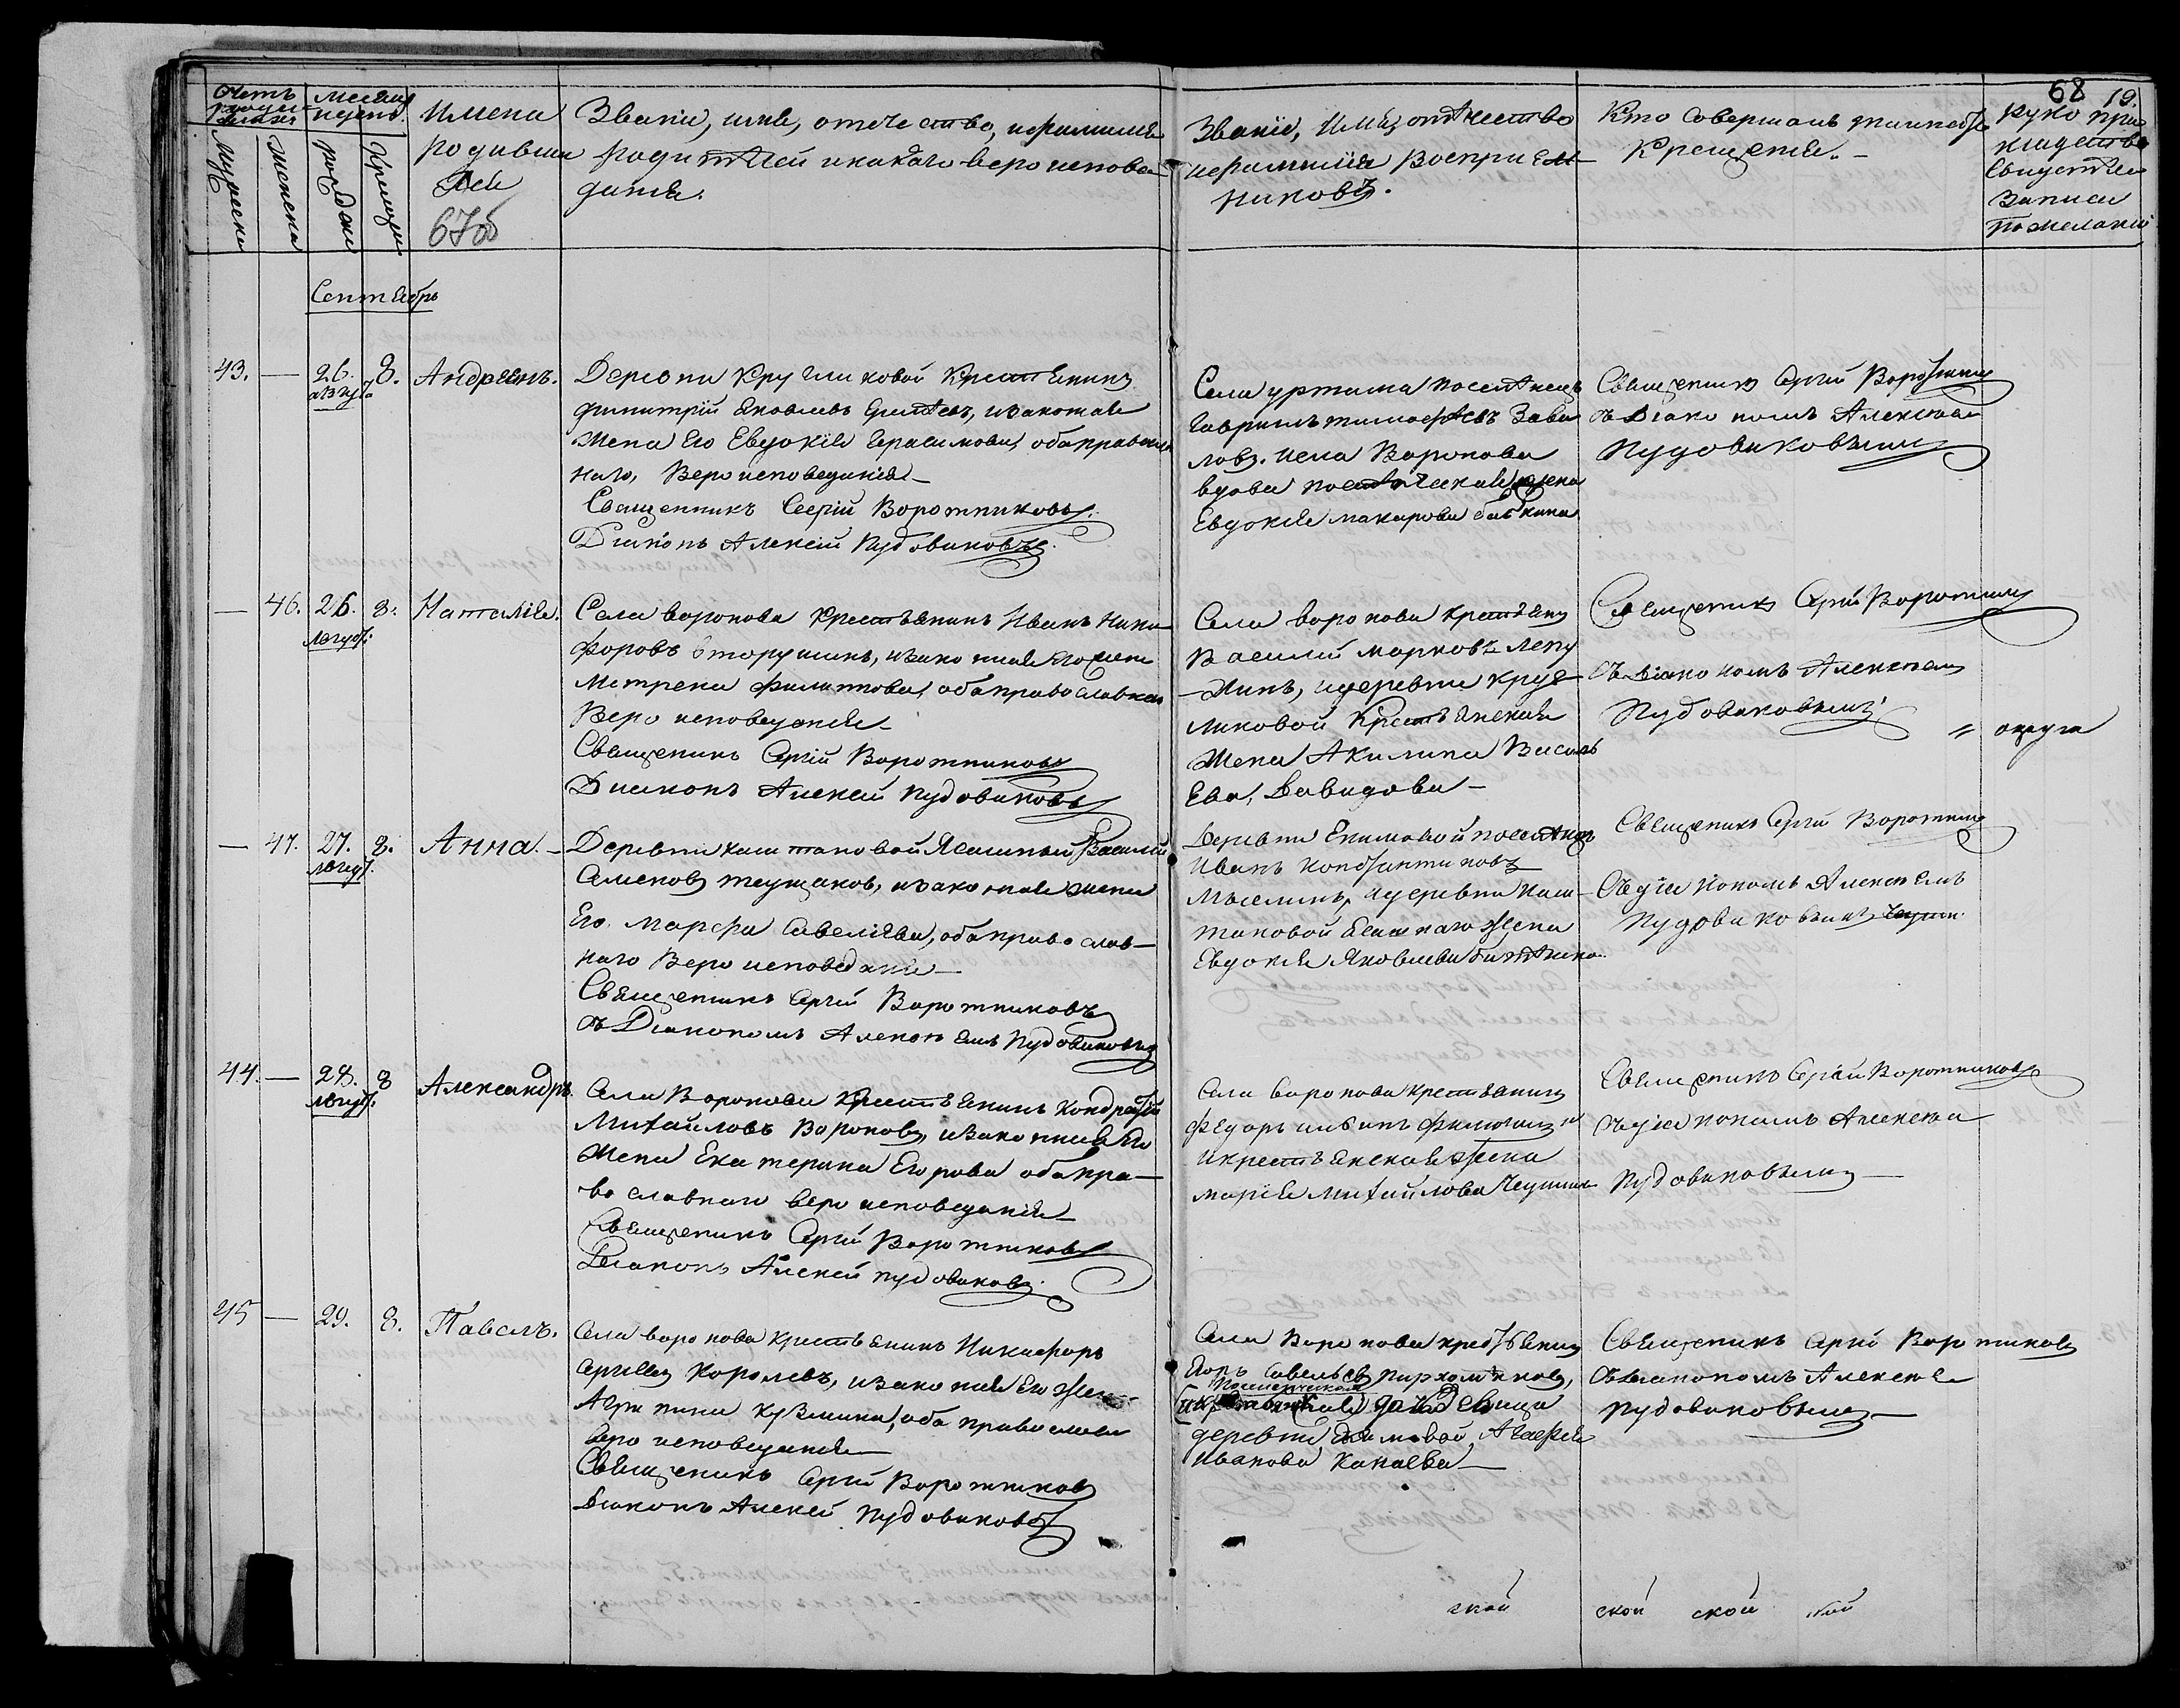 68 19.
Счетъ родившихся
Месяцъ и день.
Мужеска
Женска
рождения
Крещения
Имена
родивши
хся
67об
Званiе, имя, отечество, и фамилия
родителей и какого вероиспове-
дания.
Званiе, Имя, отечество
и фамилiя Восприем-
никовъ.
Кто совершалъ таинство
Крещения. -
Рукопри-
кладство
свидетелей
записи
по желанiю
Сентябрь
43. — 26. августа 8. Андреянъ.
Деревни Кругликовой Крестьянинъ
Димитрiй Яковлевъ, и законная
жена его Евдокiя Герасимова, оба православ
наго, Вероисповеданiя —
Священникъ Сергiй Воротниковъ.
Дiаконъ Алексiй Пудовиковъ.
Села уртама поселенецъ
Гаврилъ тимофеевъ Зави
ловъ. села Воронова
вдова поселенческая жена
Евдокия макарова бабкина
Священникъ Сергiй Воротник
съ Дiакономъ Алексеемъ
Пудовиковымъ
— 46. 26. августа 8. Наталiя.
Села воронова Крестьянинъ Иванъ Ники-
форовъ Вторушинъ, и законная его жена
Матрена Филиппова, оба православнаго
Вероисповедания
Священникъ Сергiй Воротниковъ
Диаконъ Алексей Пудовиковъ
Села воронова крестьянин
Василий марковъ лепу
-хинъ, и деревни круг-
ликовой Крестьянская
жена Акилина Василь
ева, Давидова —
Священникъ Сергiй Воротник
съ дiакономъ Алексеемъ
Пудовиковымъ
" округа
— 47. 27. августа 8. Анна. —
Деревни каштаковой Ясашный Василий
Семеновъ теущаков, и законная жена
Его. Марфа Савелiева, оба православ-
наго Вероисповедания —
Священникъ Сергiй Воротниковъ
съ Дiакономъ Алексеемъ Пудовиковъ
Деревни Екимовой поселенецъ
Иванъ Константиновъ
Мыселинъ, и деревни каш-
таковой Ясашнаго жена
Евдокия Яковлева
Священникъ Сергiй Воротник
Съ дiакономъ Алексеемъ
Пудовиковымъ
44. — 28. августа 8 Александръ.
Села Воронова Крестьянинъ Кондратiй
Михайловъ Вороновъ, и законная его
жена Екатерина Егорова оба пра-
вославнаго вероисповеданiя —
Священникъ Сергiй Воротниковъ
Дiаконъ Алексей Пудовиковъ.
Села воронова крестьянинъ
Федоръ
и крестьянская жена
марiя Михайлова
Священникъ Сергiй Воротниковъ
съ дiакономъ Алексеемъ
Пудовиковымъ —
45 — 29. 8. Павелъ.
Села воронова крестьянинъ Никифоръ
Сергеевъ Королевъ, и законная его жена
Агрипина Кузмина, оба православ
вероисповедания
Священникъ Сергiй Воротниковъ
Дiаконъ Алексей Пудовиковъ
Села Воронова крестьянинъ
Савельевъ пархоменковъ,
поселенческая
дочь девица
деревни Екимовой, Агафия
Иванова Канаева —
Священникъ Сергiй Воротниковъ
съ дiакономъ Алексеемъ
Пудовиковымъ —
ской ской ской кой